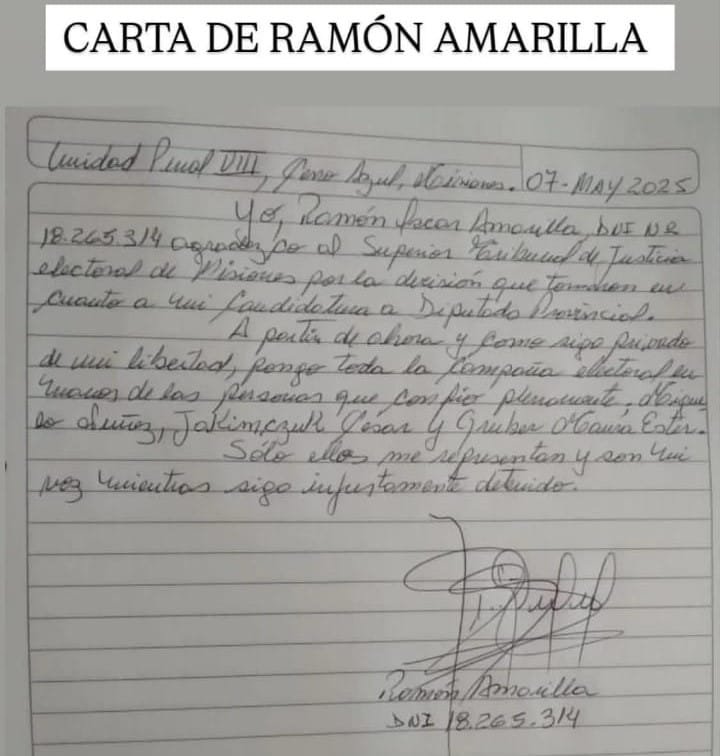 CARTA DE RAMÓN AMARILLA
Unidad Penal VIII, Cerro Azul, Misiones. 07-MAY 2025
Yo, Ramón Oscar Amarilla, DNI Nº
18.265.314 agradezco al Superior Tribunal de Justicia
electoral de Misiones por la decisión que tomaron en
cuanto a mi candidatura a Diputado Provincial.
A partir de ahora y como sigo privado
de mi libertad, pongo toda la campaña electoral en
manos de las personas que confío plenamente,
Nuñez, Jakimczuk Cesar y Gruber Maura Ester.
Sólo ellos me representan y son mi
voz mientras sigo injustamente detenido.
Ramón Amarilla
DNI 18.265.314